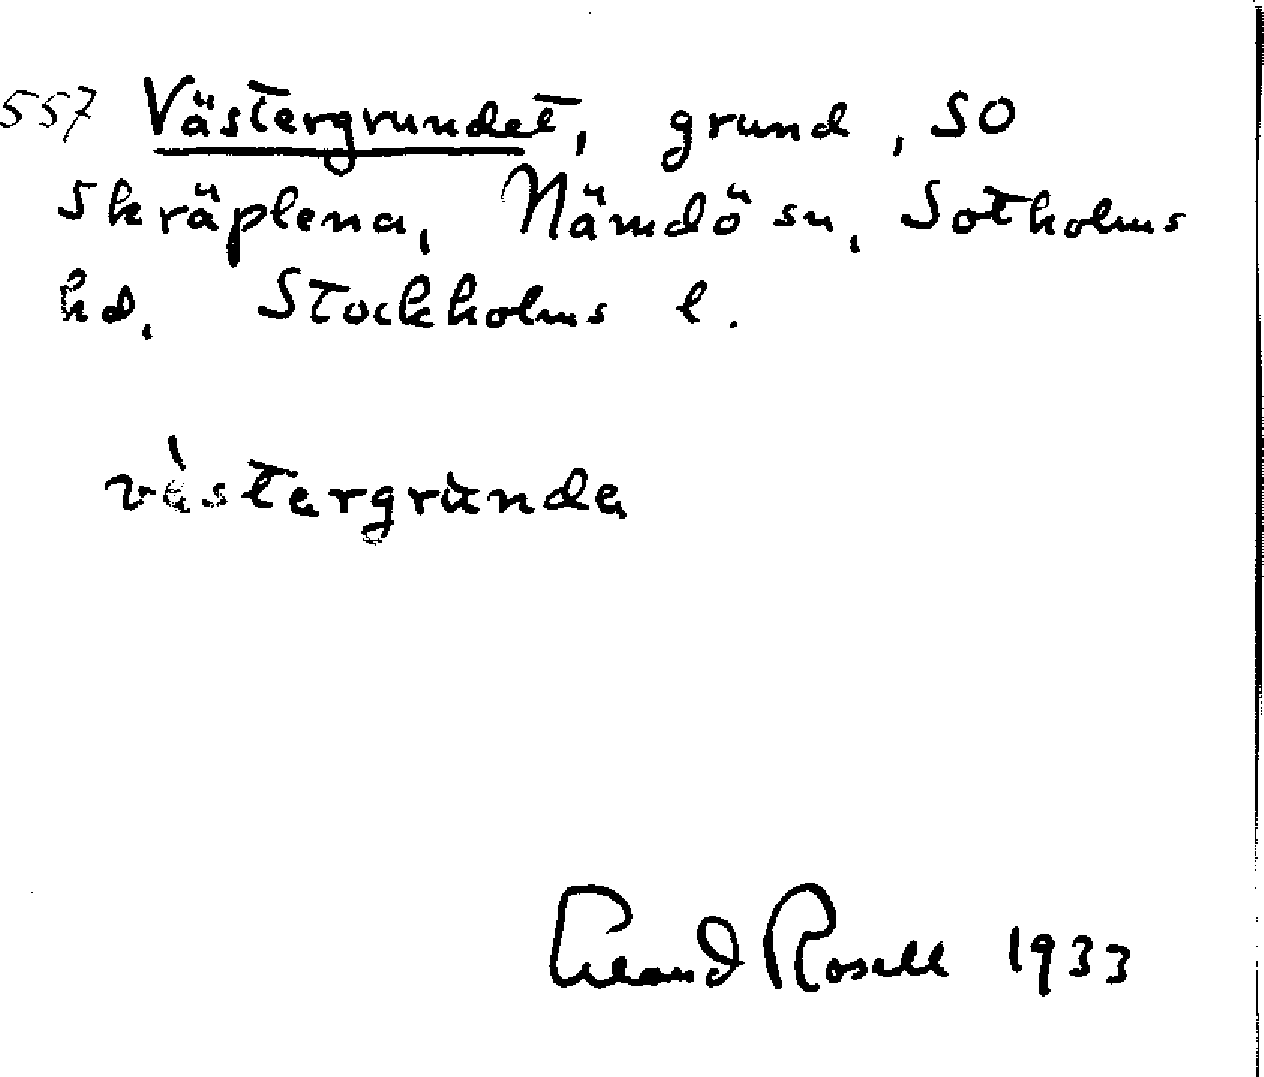 557 Västergrundet, grund, SO
Skräplena, Nämdö sn, Sotholms
hd, Stockholms l.
västergrùnda
Erland Rosell 1933